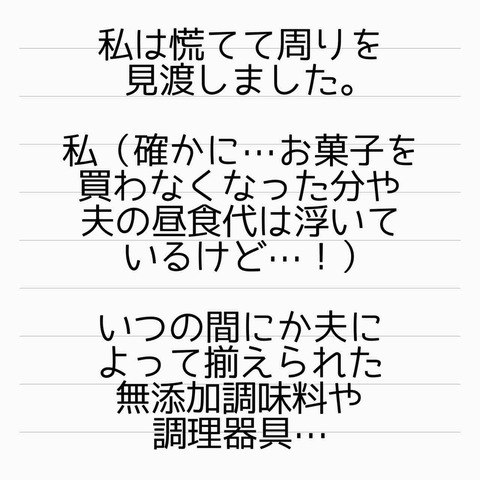 私は慌てて周りを
見渡しました。
私（確かに…お菓子を
買わなくなった分や
夫の昼食代は浮いて
いるけど…！）
いつの間にか夫に
よって揃えられた
無添加調味料や
調理器具…